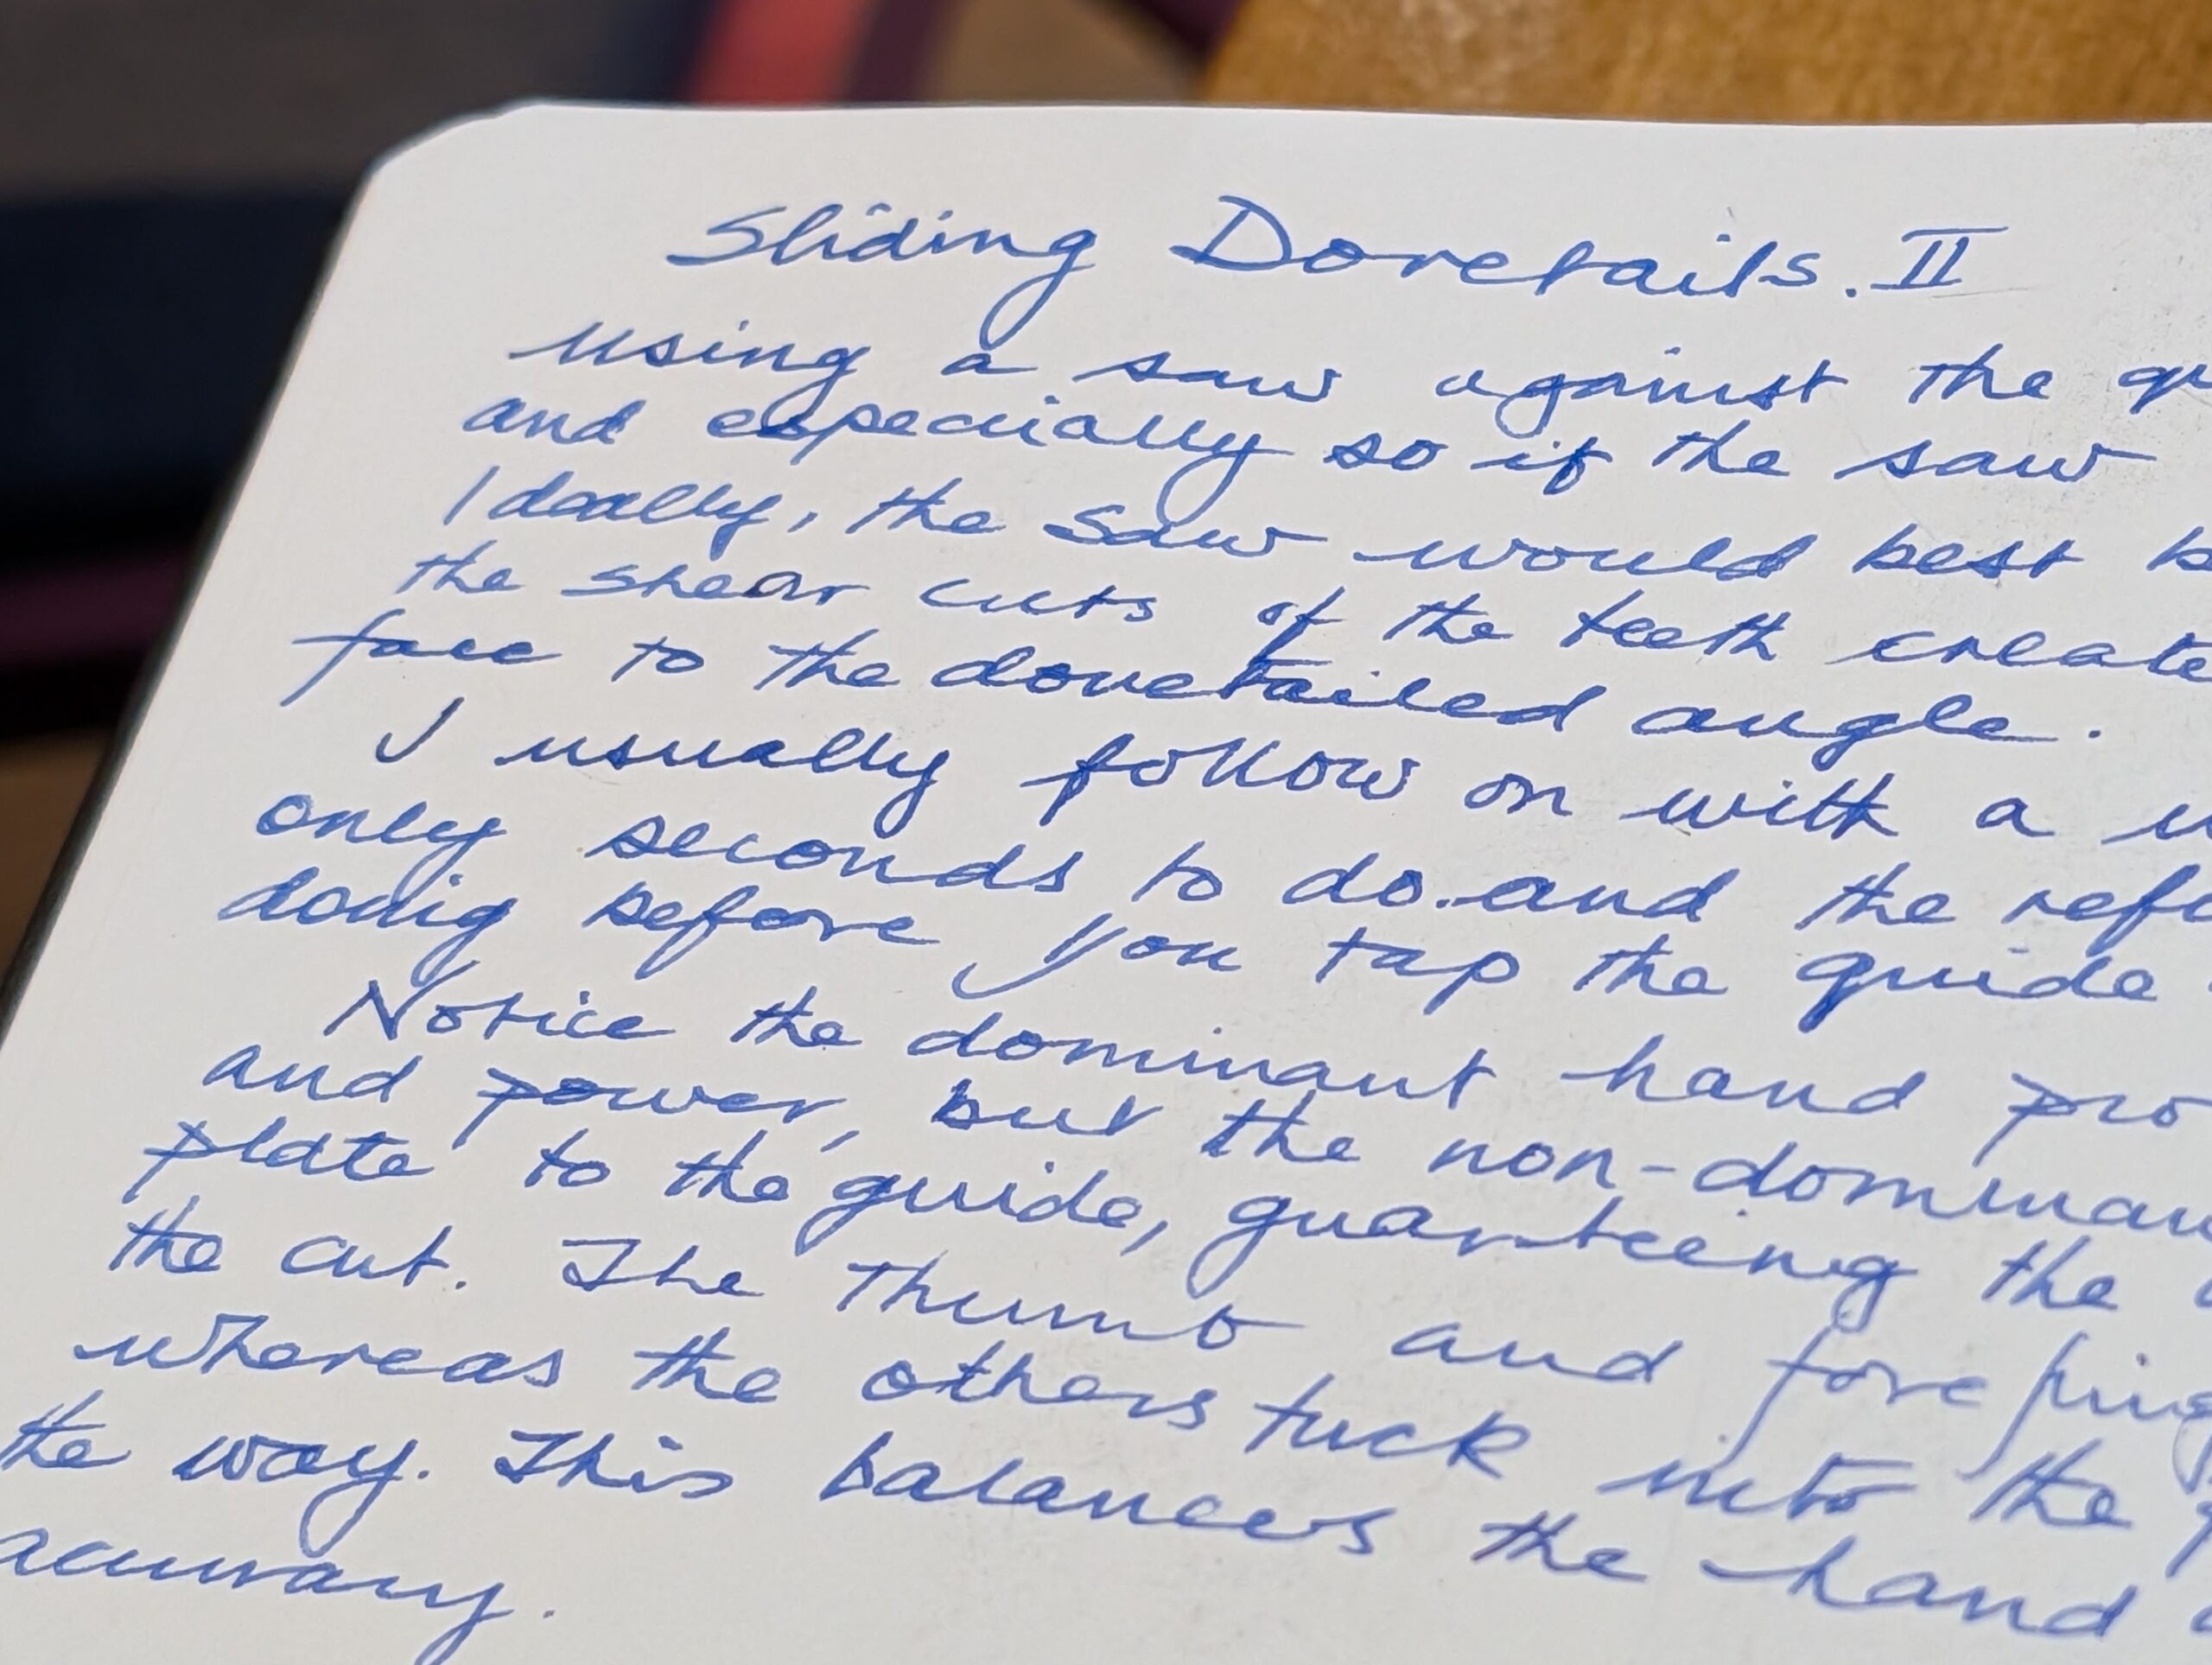 Sliding Dovetails. II
using a saw against the
and especially so if the saw
Ideally, the saw would best
the shear cuts of the teeth create
face to the dovetailed angle.
I usually follow on with a
only seconds to do. and the
doing before you tap the guide
Notice the dominant hand
and power, but the
plate to the guide, guaranteeing the
the cut. The thumb and
whereas the others tuck into the
the way. This balances the hand
accuracy.